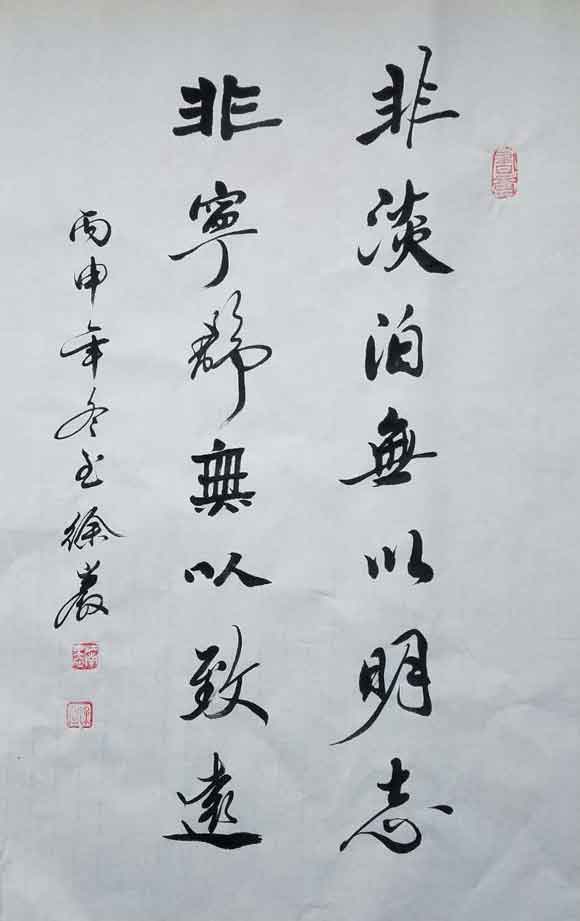 非淡泊無以明志
非寧靜無以致遠
丙申年冬書 徐嚴